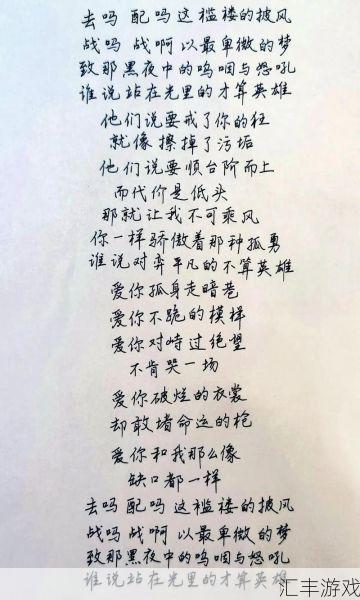 去吗 配吗 这褴褛的披风
战吗 战啊 以最卑微的梦
致那黑夜中的呜咽与怒吼
谁说站在光里的才算英雄
他们说要戒了你的狂
就像擦掉了污垢
他们说要顺台阶而上
而代价是低头
那就让我不可乘风
你一样骄傲着那种孤勇
谁说对弈平凡的不算英雄
爱你孤身走暗巷
爱你不跪的模样
爱你对峙过绝望
不肯哭一场
爱你破烂的衣裳
却敢堵命运的枪
爱你和我那么像
缺口都一样
去吗 配吗 这褴褛的披风
战吗 战啊 以最卑微的梦
致那黑夜中的呜咽与怒吼
谁说站在光里的才算英雄
汇丰游戏